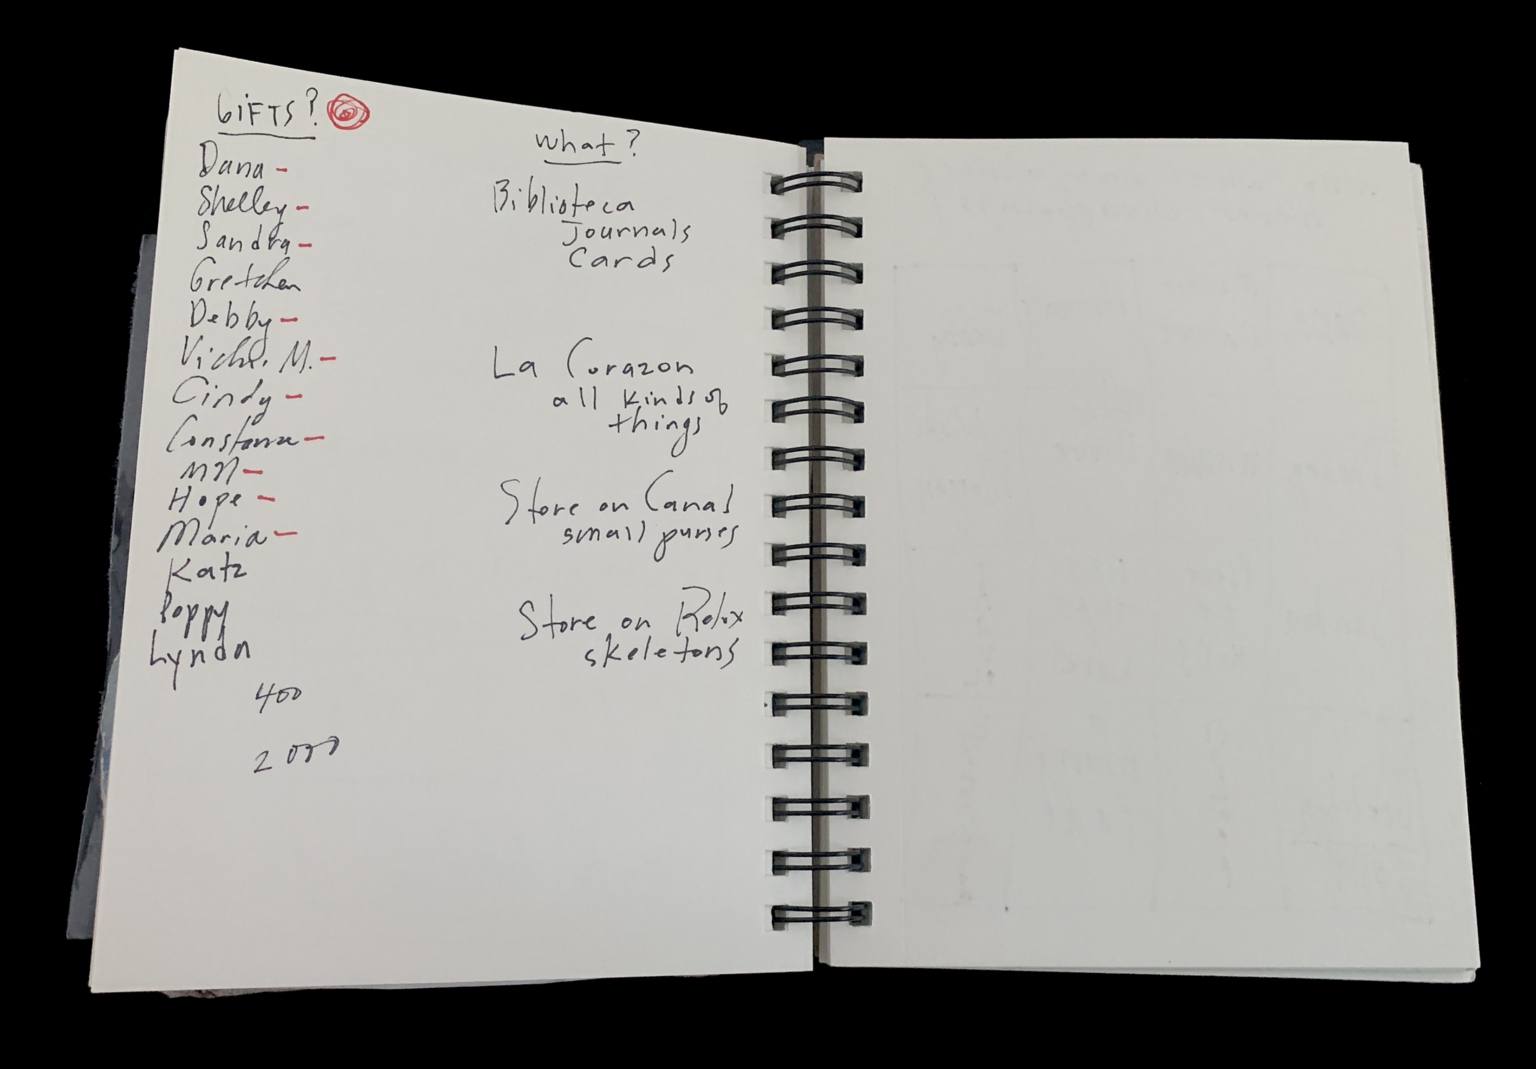 GIFTS?
Dana -
Shelley -
Sandra -
Gretchen
Debby -
Vicki M. -
Cindy -
Constanza -
MN -
Hope -
Maria -
Katz
Poppy
Lynda
400
2000
What?
Biblioteca
Journals
Cards
La Corazon
all kinds of
things
Store on Canal
small purses
Store on Relox
skeletons